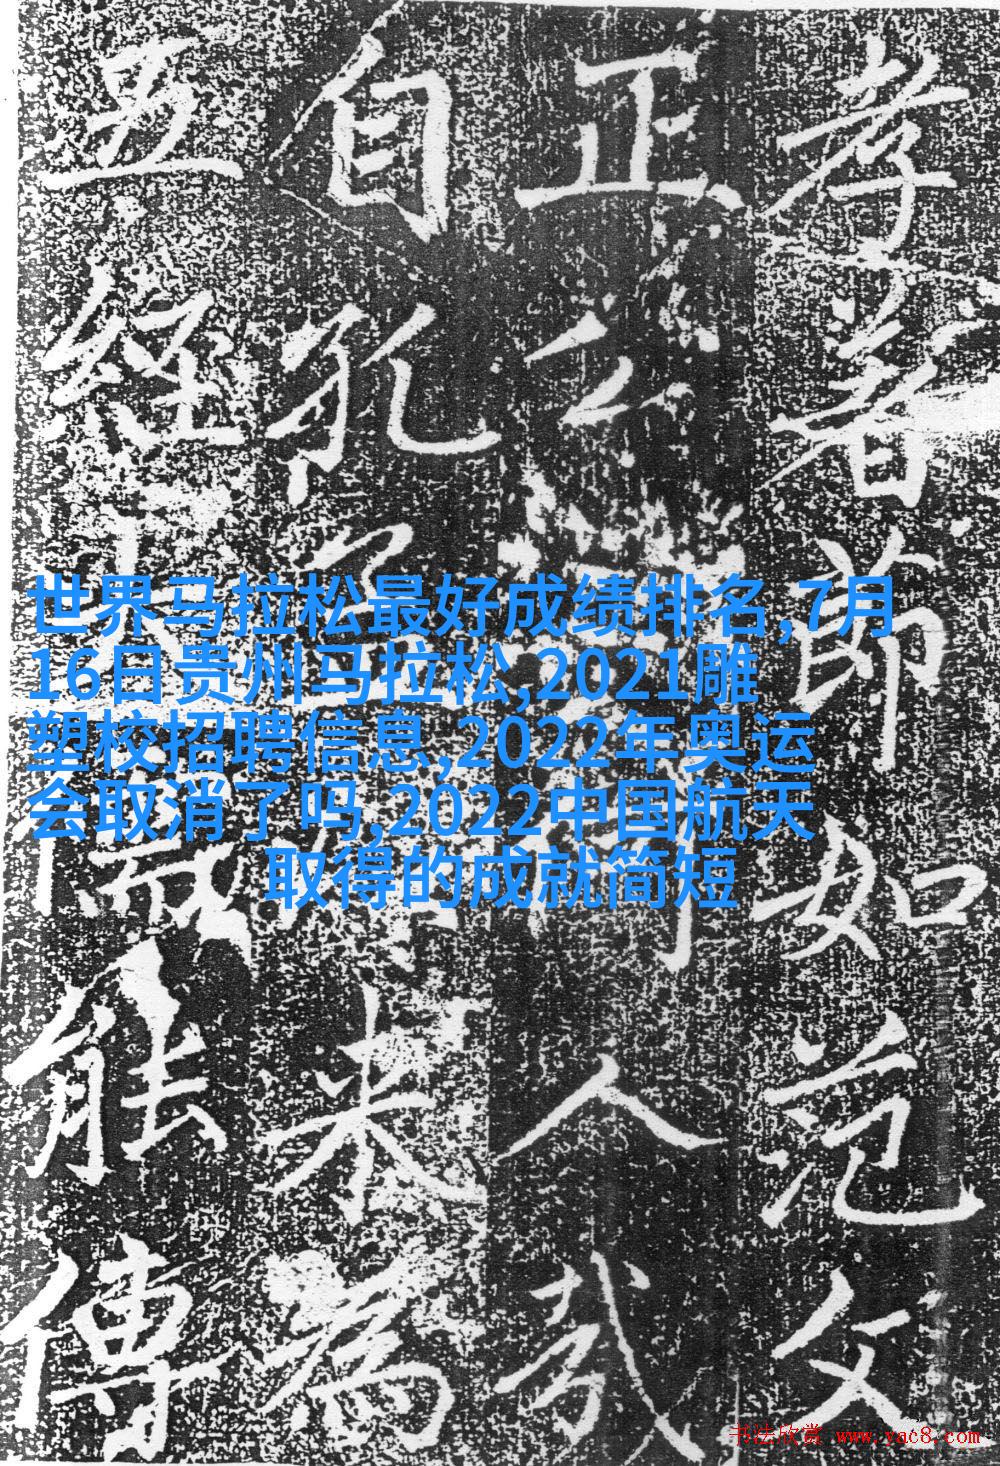 世界马拉松最好成绩排名,7月
16日贵州马拉松,2021雕
塑校招聘信息,2022年奥运
会取消了吗,2022中国航天
取得的成就简短
孝著節如范文
正公人哉
自孔来為
五經能傳
书法欣赏 www.yac8.com